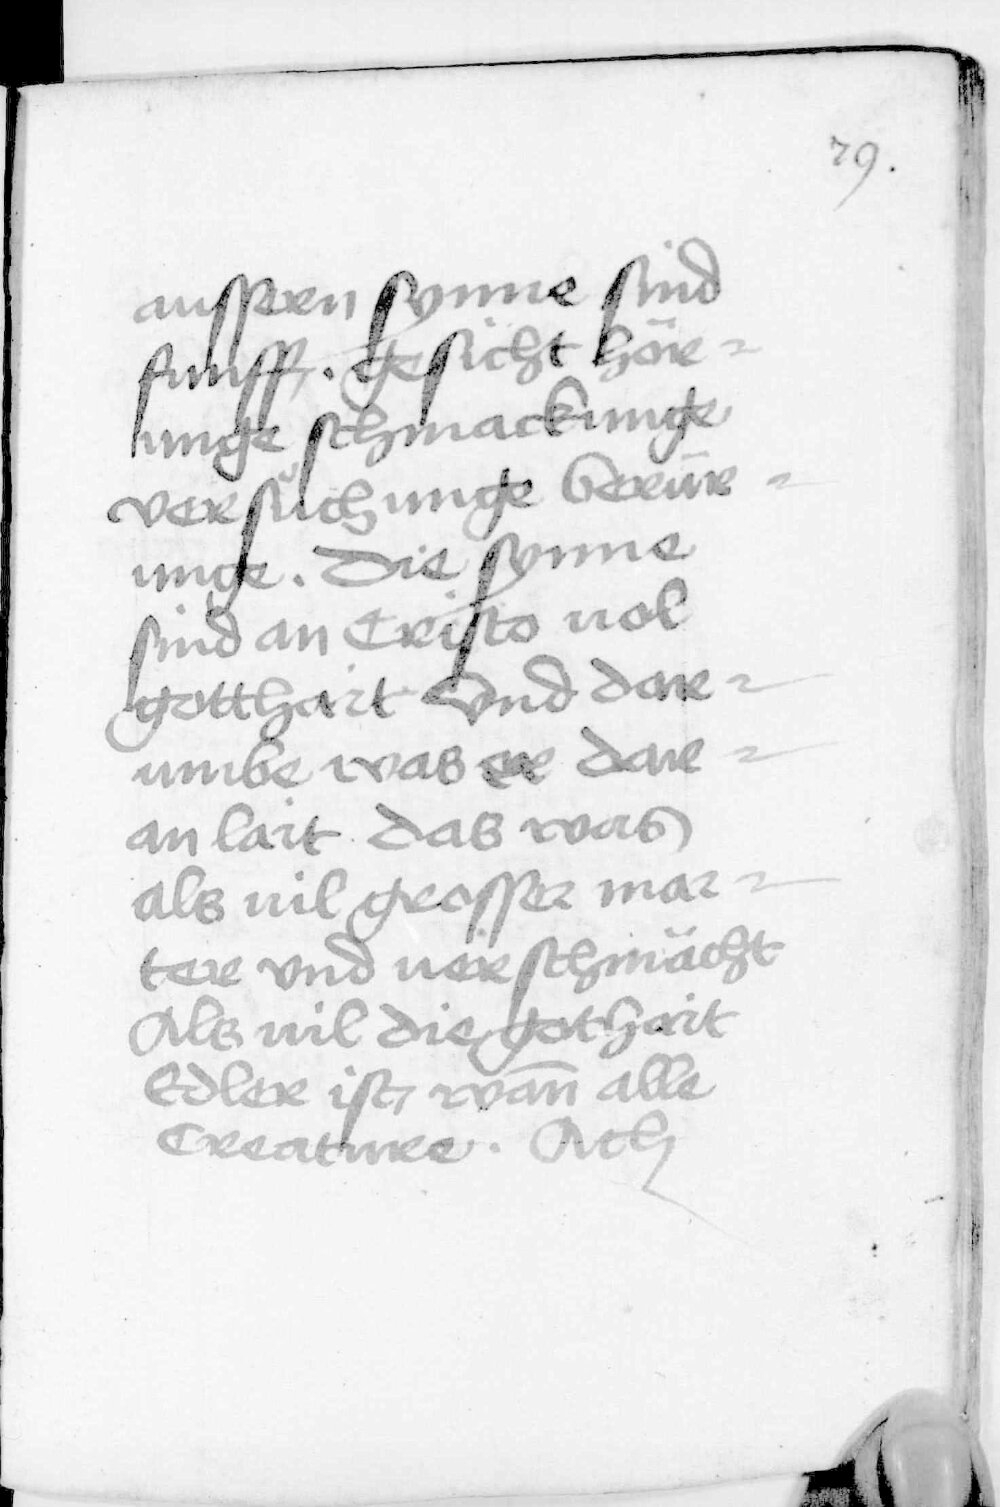 79.
aussern synne sind
funff. gesicht hör-
unge schmackunge
versůchunge berür-
unge. Die synne
sind an Cristo uol
gotthait Vnd dar-
umbe was er dar-
an lait das was
als uil grosser mar-
ter vnd uerschmächt
Als uil die gothait
Edler ist, wañ alle
Creature. Ach